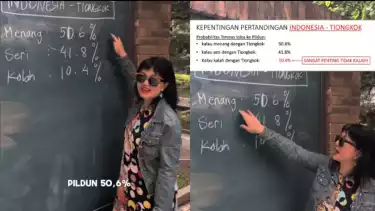 INDONESIA - TIONGKOK
Menang : 50 6%
Seri : 41.8%
Kalah : 10.4%
PILDUN 50,6%
KEPENTINGAN PERTANDINGAN INDONESIA - TIONGKOK
Probabilitas Timnas lolos ke Pildun:
• kalau menang dengan Tiongkok: 50.6%
• kalau seri dengan Tiongkok: 41.8%
• Kalau kalah dengan Tiongkok: 10.4% SANGAT PENTING TIDAK KALAH!
INDONESIA - TIONGKOK
Menang : 50 6%
Seri 41 8%
Kalah : 10